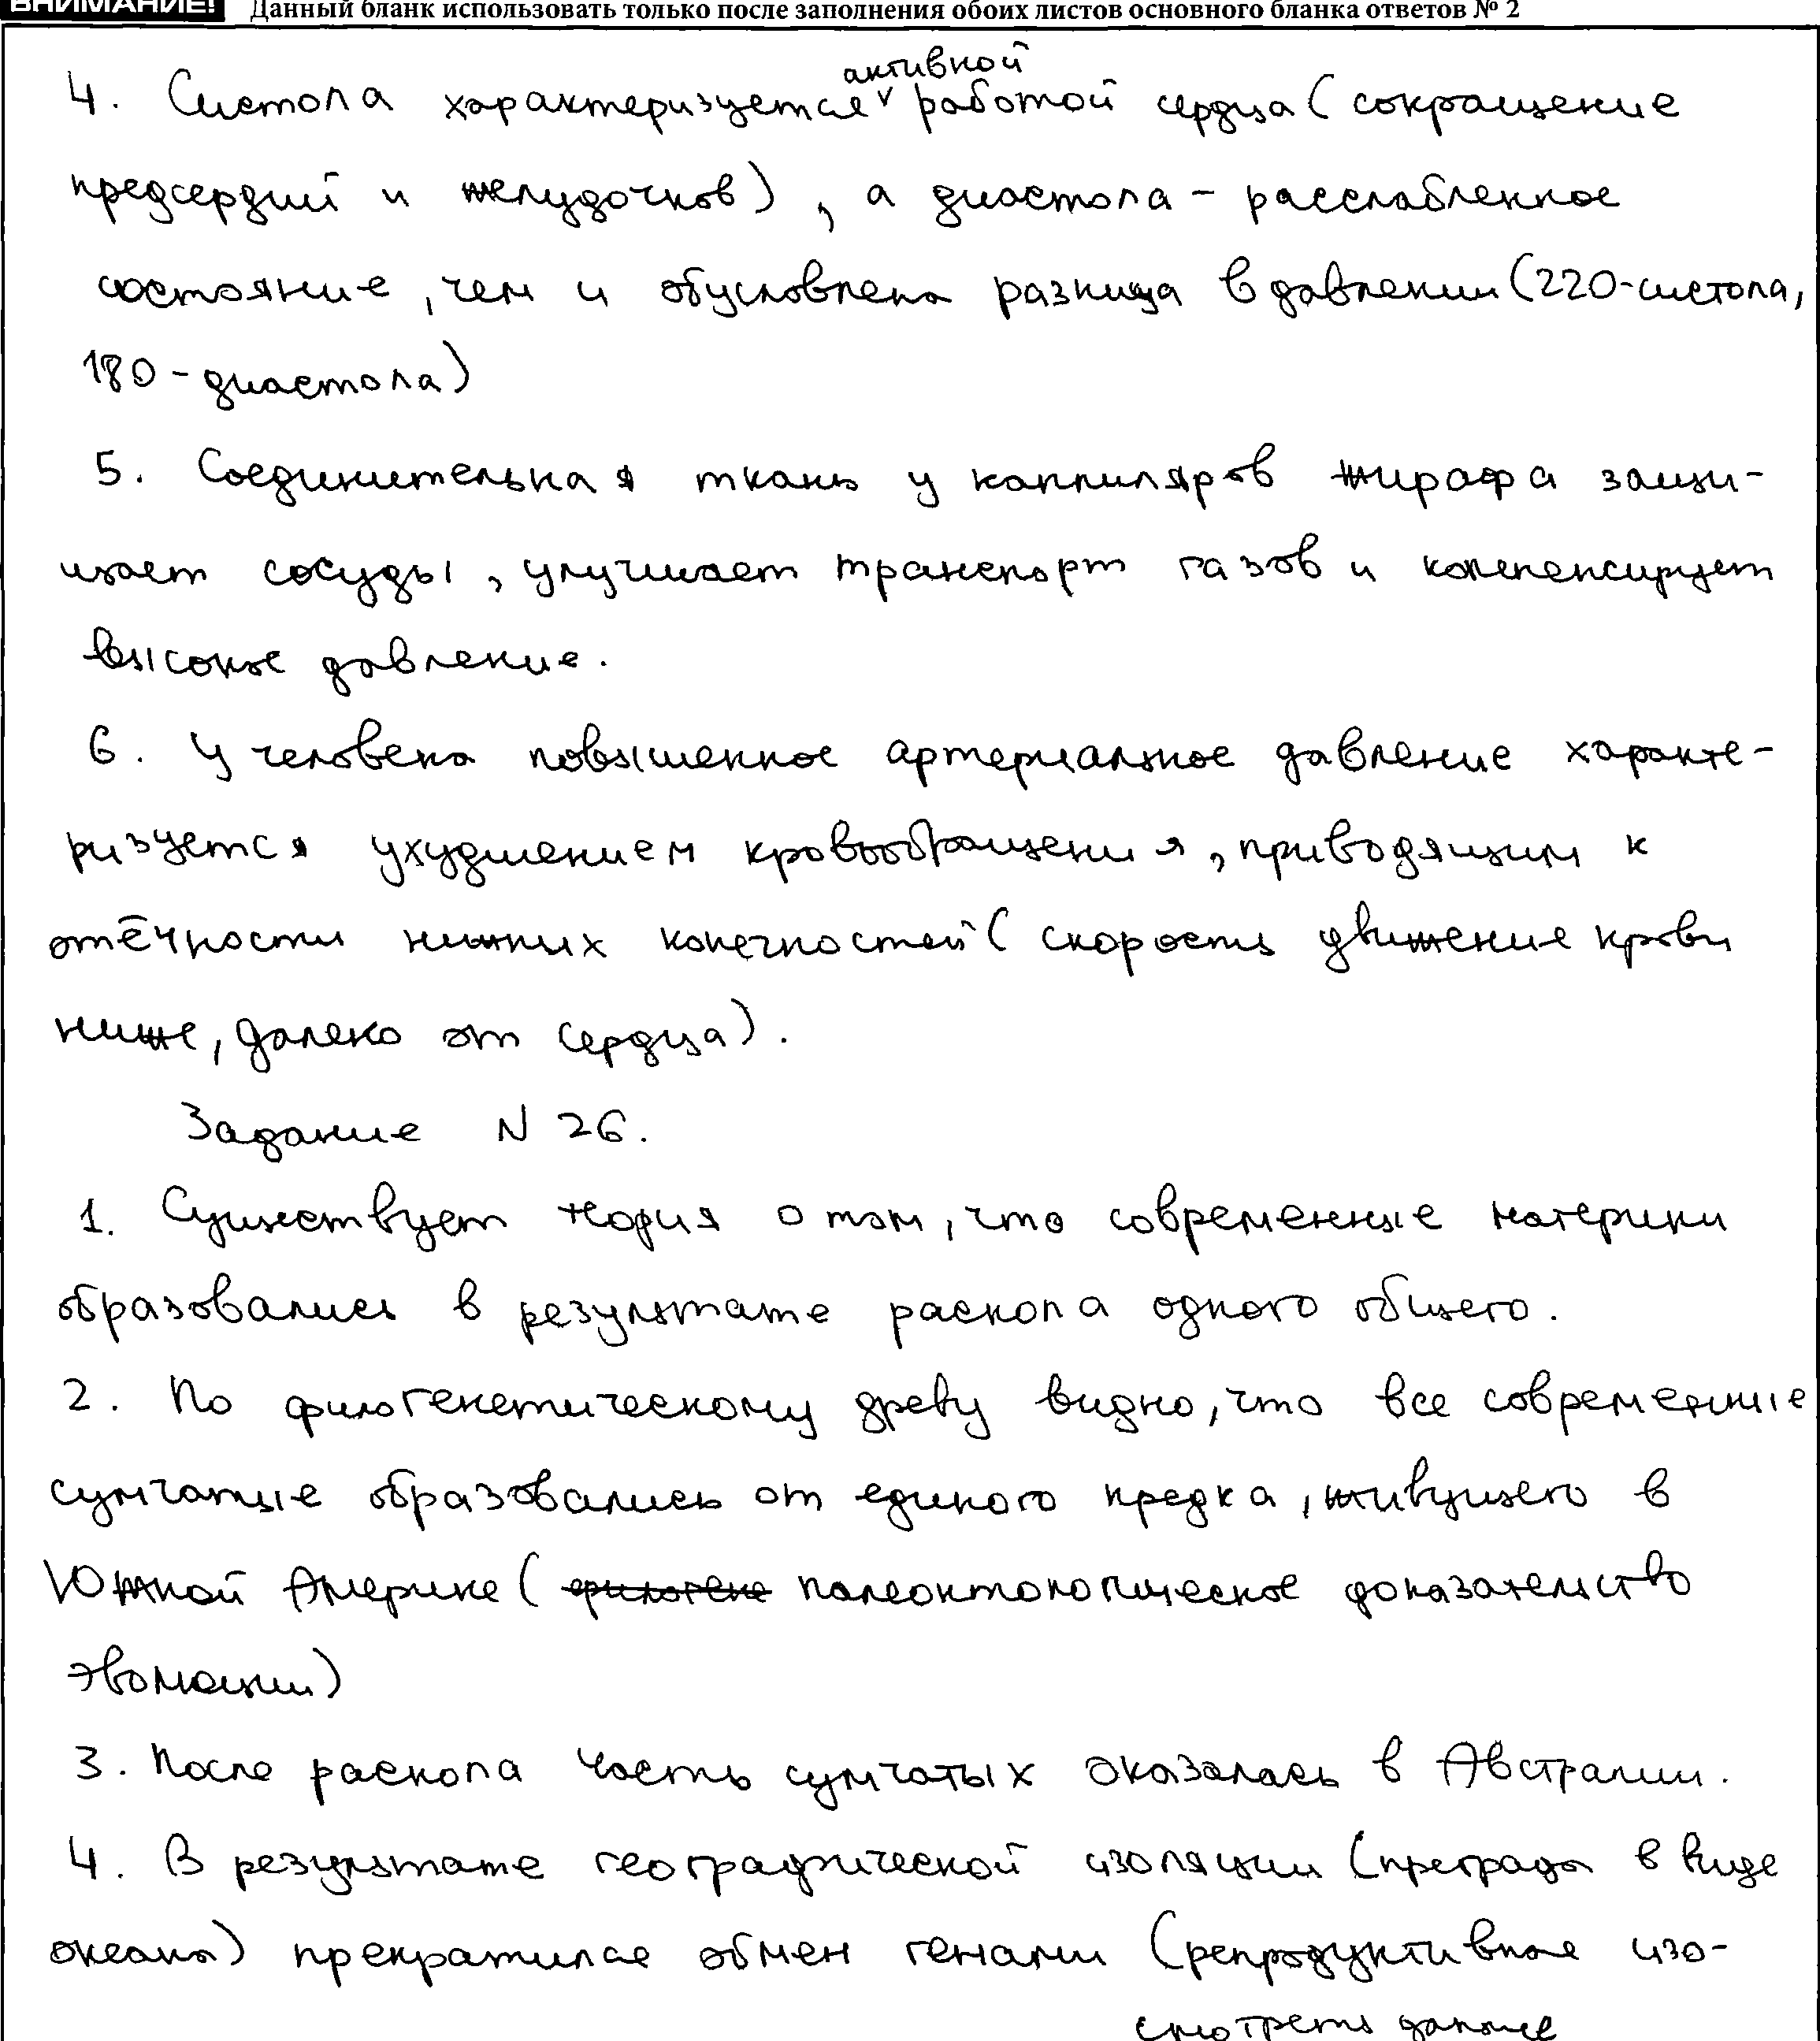 ВНИМАНИЕ! Данный бланк использовать только после заполнения обоих листов основного бланка ответов № 2
активной
4. Систола характеризуется ∨ работой сердца (сокращение
предсердий и желудочков), а диастола - расслабленное
состояние, чем и обусловлена разница в давлении (220-систола,
180 - диастола)
5. Соединительная ткань у каппиляров жирафа защи-
щает сосуды, улучшает транспорт газов и компенсирует
высокое давление.
6. У человека повышенное артериальное давление характе-
ризуется ухудшением кровообращения, приводящим к
отёчности нижних конечностей (скорость движение крови
ниже, далеко от сердца).
Задание N 26.
1. Существует теория о том, что современные материки
образовались в результате раскола одного общего.
2. По филогенетическому древу видно, что все современные
сумчатые образовались от единого предка, живущего в
Южной Америке (филогене палеонтологическое доказательство
эволюции)
3. После раскола часть сумчатых оказалась в Австралии.
4. В результате географической изоляции (преграда в виде
океана) прекратился обмен генами (репродуктивная изо-
смотреть дальше